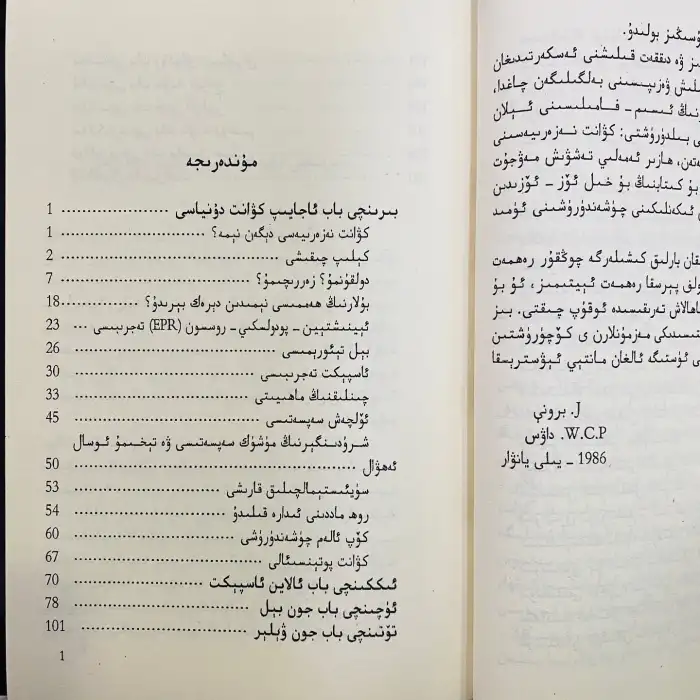 مۇندەرىجە
بىرىنچى باب ئاجايىپ كۋانت دۇنياسى ..................... 1
كۋانت نەزەرىيەسى دېگەن نېمە؟ ............................ 1
كېلىپ چىقىشى ............................................ 2
دولقۇنمۇ؟ زەررىچىمۇ؟ ................................... 7
بۇلارنىڭ ھەممىسى نېمىدىن دېرەك بېرىدۇ؟ ................18
ئېينىشتېين - پودولسكىي - روسسون (EPR) تەجرىبىسى ... 23
بېل تېئورېمىسى ........................................ 26
ئاسپېكت تەجرىبىسى ................................... 30
چىنلىقنىڭ ماھىيىتى .................................... 33
ئۆلچەش سەپسەتىسى ................................... 45
شرۇدىنگېرنىڭ مۈشۈك سەپسەتىسى ۋە تېخىمۇ ئوسال
ئەھۋال .................................................. 50
سۇيئىستېمالچىلىق قارىشى ............................ 53
روھ ماددىنى ئىدارە قىلىدۇ ............................ 54
كۆپ ئالەم چۈشەندۈرۈشى .............................. 60
كۋانت پوتېنسىئالى ..................................... 67
ئىككىنچى باب ئالاين ئاسپېكت ......................... 70
ئۈچىنچى باب جون بېل ................................. 78
تۆتىنچى باب جون ۋېلېر ................................ 101
1
بولىدۇ.
ۋە دىققەت قىلىشنى ئەسكەرتىدىغان
ۋەزىپىسىنى بەلگىلىگەن چاغدا،
ئىسىم - فامىلىسىنى ئېلان
بىلدۈرۈشتى: كۋانت نەزەرىيەسىنى
ھازىر ئەمەلىي تەشۋىش مەۋجۇت
بۇ كىتابنىڭ بۇ خىل ئۆز - ئۆزىدىن
ئىكەنلىكىنى چۈشەندۈرۈشنى ئۈمىد
بارلىق كىشىلەرگە چوڭقۇر رەھمەت
پېرسقا رەھمەت ئېيتىمىز، ئۇ بۇ
تەرىقىسىدە ئوقۇپ چىقتى. بىز
مەزمۇنلارن ى كۆچۈرۈشتىن
ئۈستىگە ئالغان مانتېي ئېۋستربىسقا
J. برونې
W.C.P. داۋس
1986 - يىلى يانۋار